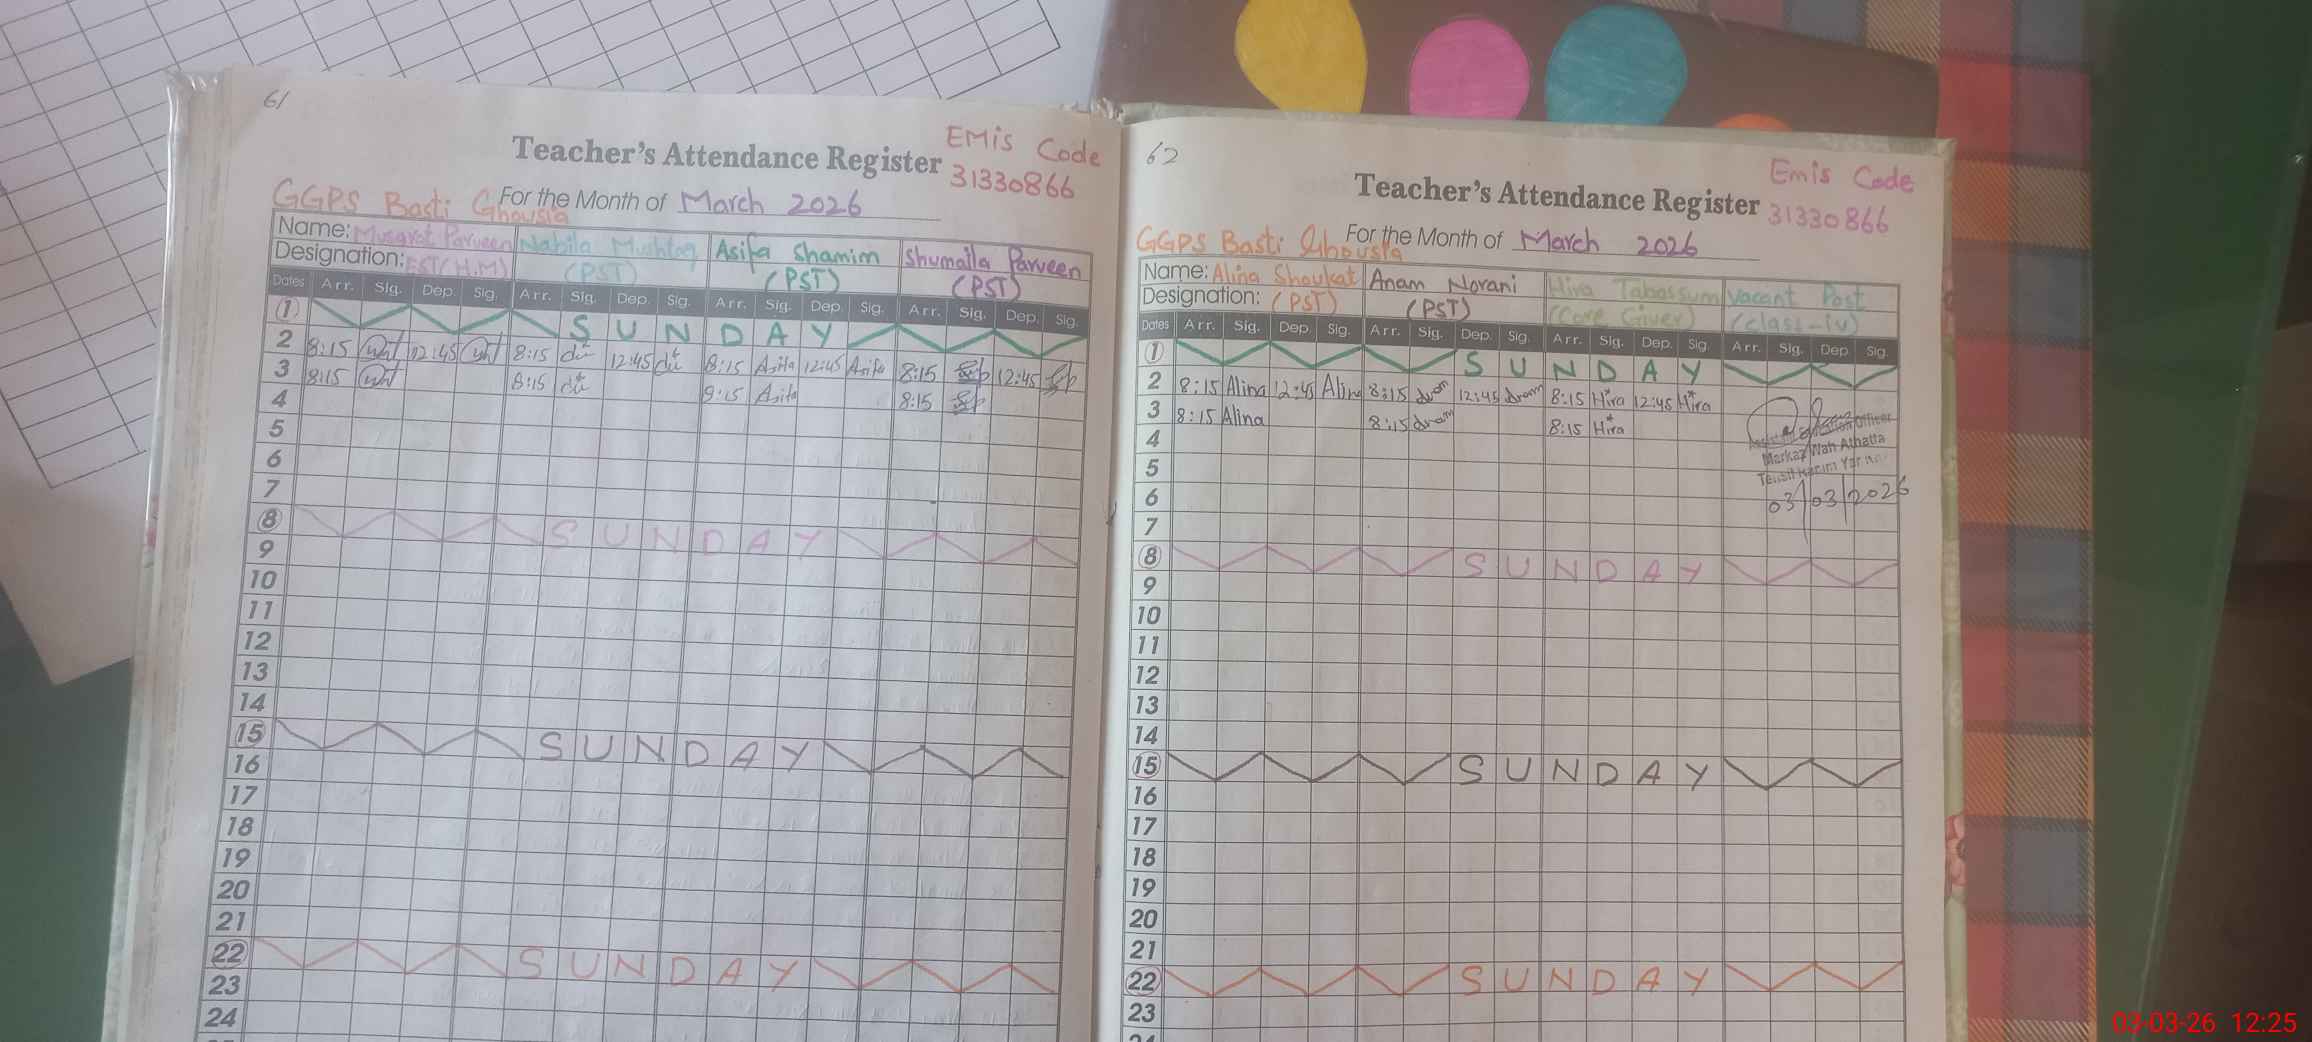 61
Teacher's Attendance Register
EMis Code
31330866
GGPS Basti Ghousia
For the Month of March 2026
Name: Musarat Parveen Nabila Mushtaq Asifa Shamim Shumaila Parveen
Designation: EST(H.M) (PST) (PST) (PST)
Dates Arr. Sig. Dep. Sig. Arr. Sig. Dep. Sig. Arr. Sig. Dep. Sig. Arr. Sig. Dep. Sig.
1 SUNDAY
2 8:15 12:45 8:15 12:45 8:15 Asifa 12:45 Asifa 8:15 12:45
3 8:15 8:15 8:15 Asifa 8:15
4
5
6
7
8 SUNDAY
9
10
11
12
13
14
15 SUNDAY
16
17
18
19
20
21
22 SUNDAY
23
24
62
Teacher's Attendance Register
Emis Code
31330866
GGPS Basti Ghousia
For the Month of March 2026
Name: Alina Shoukat Anam Norani Hira Tabassum Vacant Post
Designation: (PST) (PST) (Care Giver) (class-iv)
Dates Arr. Sig. Dep. Sig. Arr. Sig. Dep. Sig. Arr. Sig. Dep. Sig. Arr. Sig. Dep. Sig.
1 SUNDAY
2 8:15 Alina 12:45 Alina 8:15 12:45 8:15 Hira 12:45 Hira
3 8:15 Alina 8:15 8:15 Hira
4
5
6
7
8 SUNDAY
9
10
11
12
13
14
15 SUNDAY
16
17
18
19
20
21
22 SUNDAY
23
24
Officer
Markaz Wah Athatta
Tehsil Karim Yar
03/03/2026
03-03-26 12:25